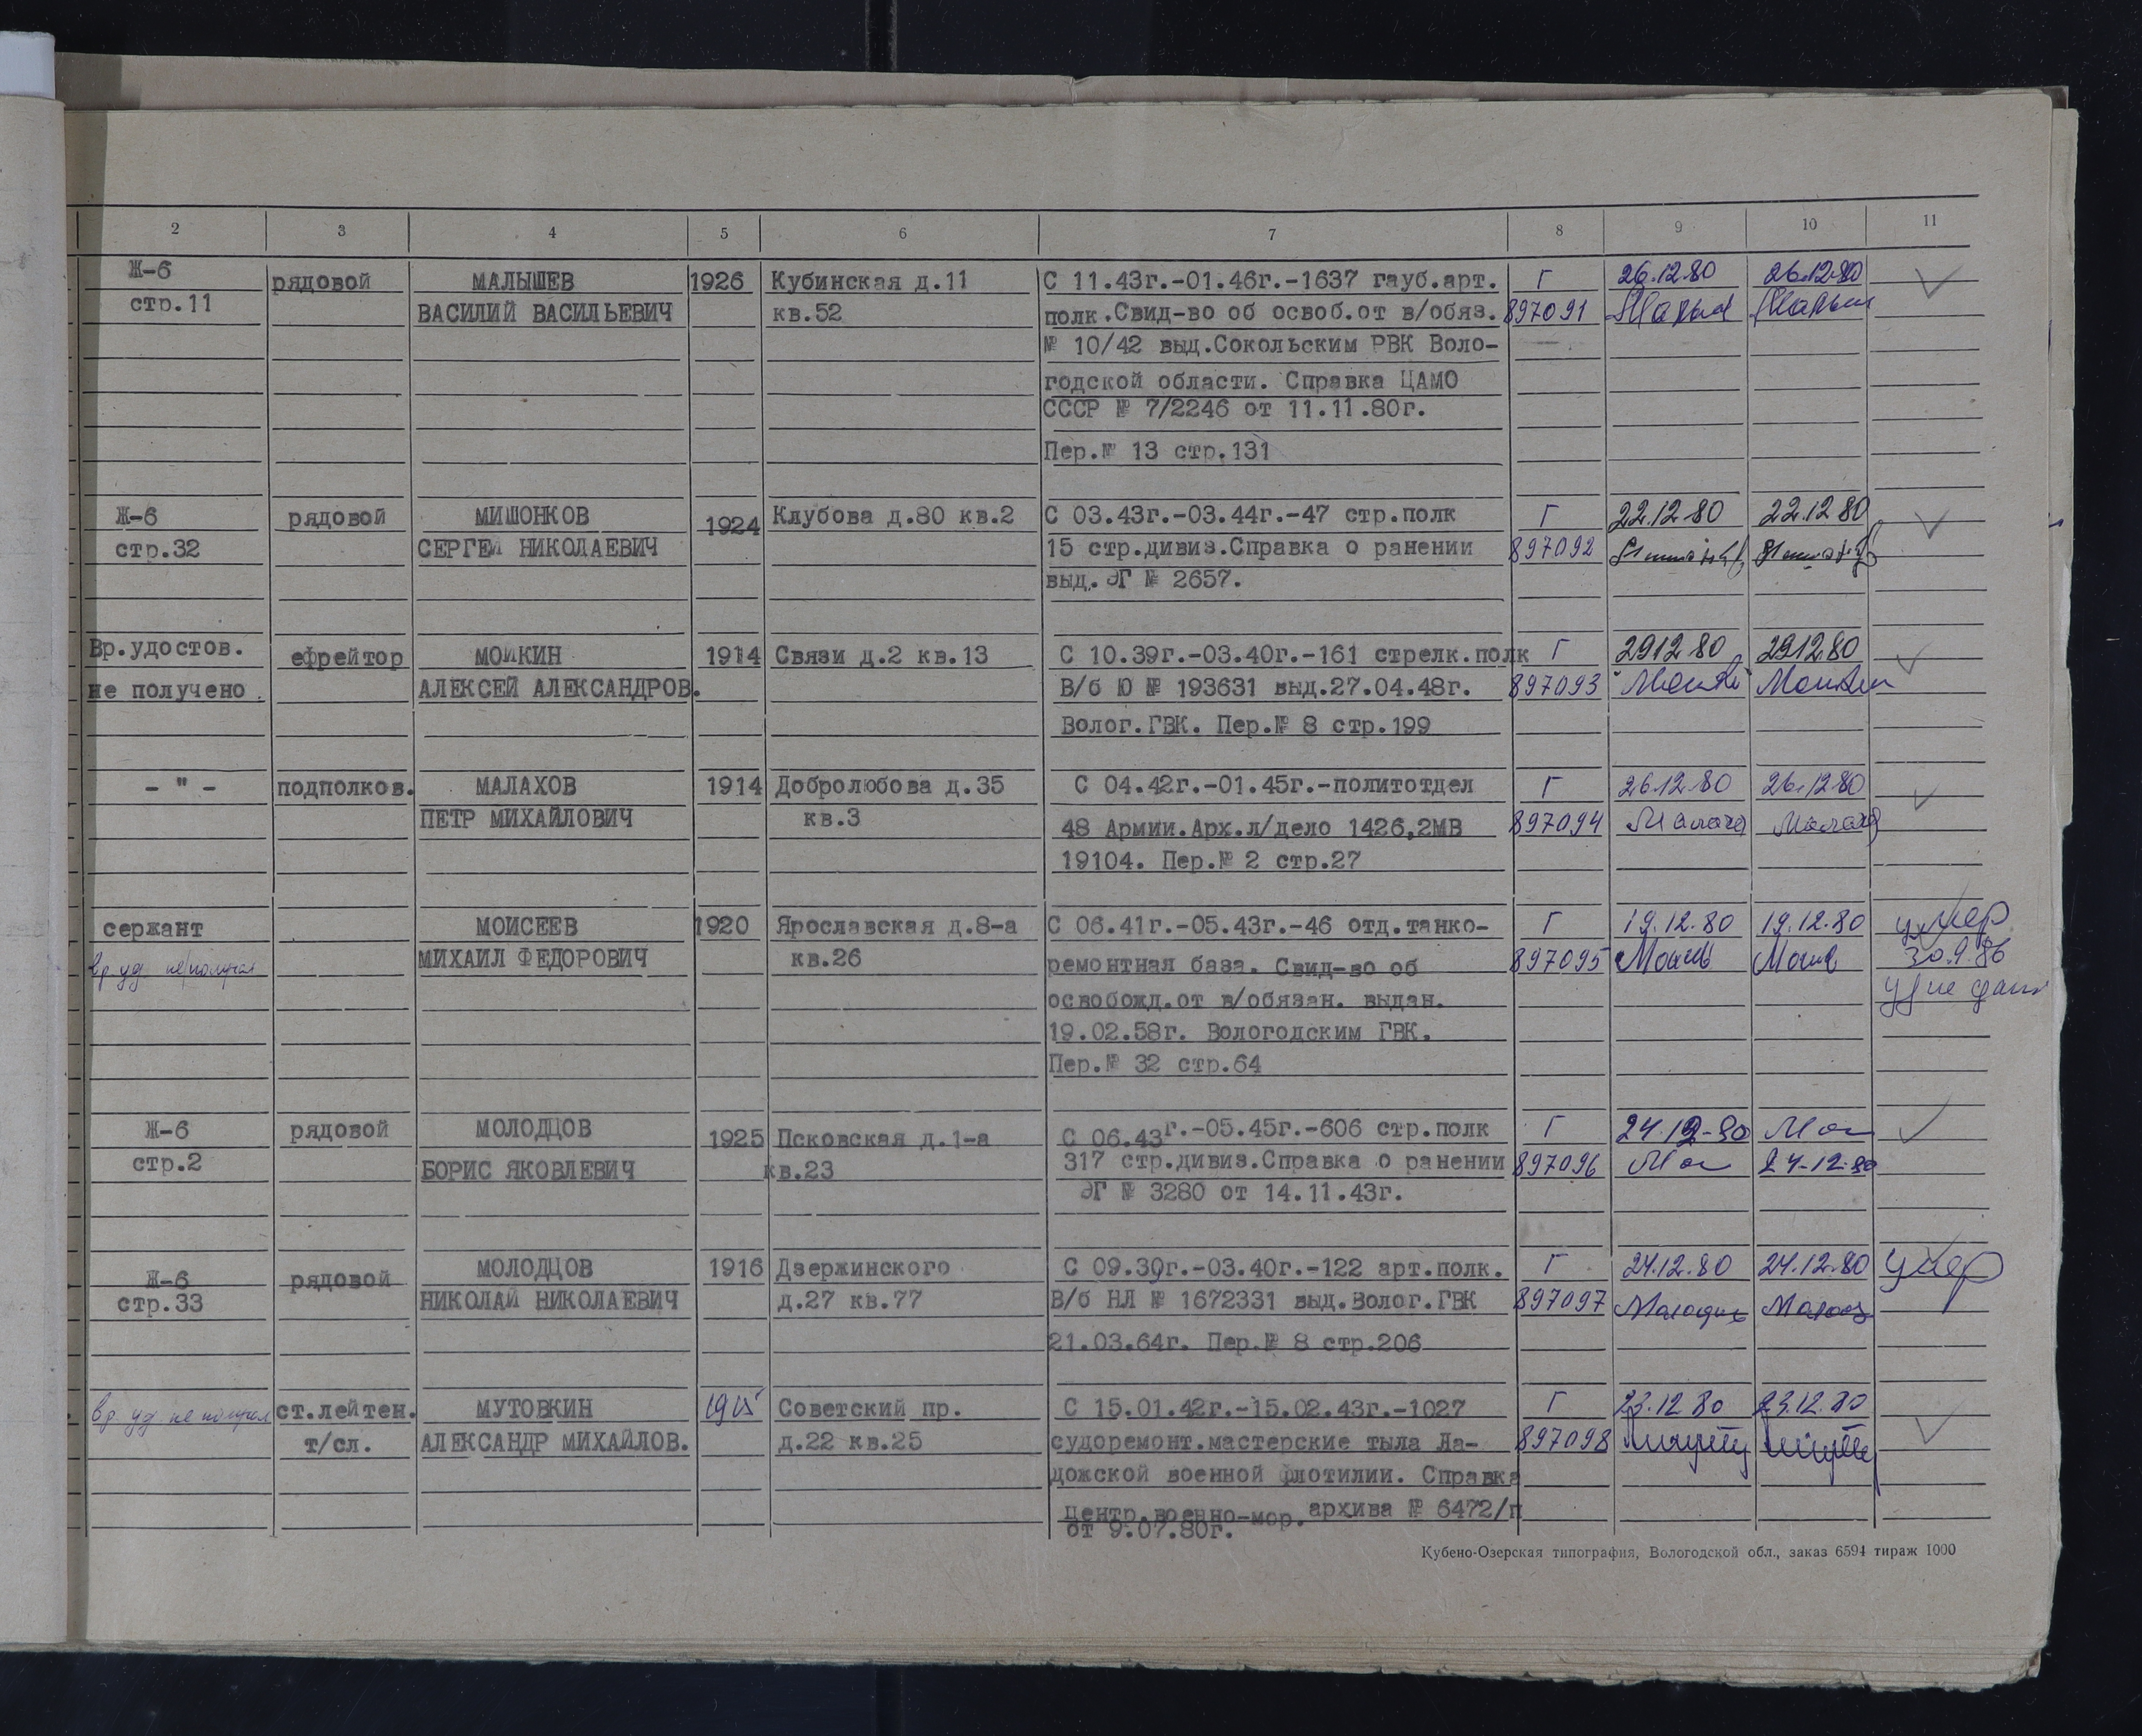 2 3 4 5 6 7 8 9 10 11
Ж-6 рядовой МАЛЫШЕВ 1926 Кубинская д.11 С 11.43г.-01.46г.-1637 гауб.арт. Г 26.12.80 26.12.80
стр.11 ВАСИЛИЙ ВАСИЛЬЕВИЧ кв.52 полк.Свид-во об освоб.от в/обяз. 897091
№ 10/42 выд.Сокольским РВК Воло-
годской области. Справка ЦАМО
СССР № 7/2246 от 11.11.80г.
Пер.№ 13 стр.131
Ж-6 рядовой МИШОНКОВ 1924 Клубова д.80 кв.2 С 03.43г.-03.44г.-47 стр.полк Г 22.12 80 22.12 80
стр.32 СЕРГЕЙ НИКОЛАЕВИЧ 15 стр.дивиз.Справка о ранении 897092
выд. ЭГ № 2657.
Вр.удостов. ефрейтор МОЙКИН 1914 Связи д.2 кв.13 С 10.39г.-03.40г.-161 стрелк.полк Г 2912 80 2912.80
не получено АЛЕКСЕЙ АЛЕКСАНДРОВ. В/б Ю № 193631 выд.27.04.48г. 897093
Волог.ГВК. Пер.№ 8 стр.199
- " - подполков. МАЛАХОВ 1914 Добролюбова д.35 С 04.42г.-01.45г.-политотдел Г 26.12.80 26.12 80
ПЕТР МИХАЙЛОВИЧ кв.3 48 Армии.Арх.л/дело 1426,2МВ 897094 Малахов Малахов
19104. Пер.№ 2 стр.27
сержант МОИСЕЕВ 1920 Ярославская д.8-а С 06.41г.-05.43г.-46 отд.танко- Г 19.12.80 19.12.80 умер
вр уд. не получал МИХАИЛ ФЕДОРОВИЧ кв.26 ремонтная база. Свид-во об 897095 30.9.86
освобожд.от в/обязан. выдан. уд не
19.02.58г. Вологодским ГВК.
Пер.№ 32 стр.64
Ж-6 рядовой МОЛОДЦОВ 1925 Псковская д.1-а С 06.43г.-05.45г.-606 стр.полк Г 24.12-80 Мол
стр.2 БОРИС ЯКОВЛЕВИЧ кв.23 317 стр.дивиз.Справка о ранении 897096 Мол 24-12.80
ЭГ № 3280 от 14.11.43г.
Ж-6 рядовой МОЛОДЦОВ 1916 Дзержинского С 09.39г.-03.40г.-122 арт.полк. Г 24.12.80 24.12.80 умер
стр.33 НИКОЛАЙ НИКОЛАЕВИЧ д.27 кв.77 В/б НЛ № 1672331 выд.Волог.ГВК 897097
21.03.64г. Пер.№ 8 стр.206
вр. уд не получал ст.лейтен. МУТОВКИН 1915 Советский пр. С 15.01.42г.-15.02.43г.-1027 Г 23.12 80 23.12.80
т/сл. АЛЕКСАНДР МИХАЙЛОВ. д.22 кв.25 судоремонт.мастерские тыла Ла- 897098
дожской военной флотилии. Справка
Центр.военно-мор.архива № 6472/п
от 9.07.80г.
Кубено-Озерская типография, Вологодской обл., заказ 6594 тираж 1000